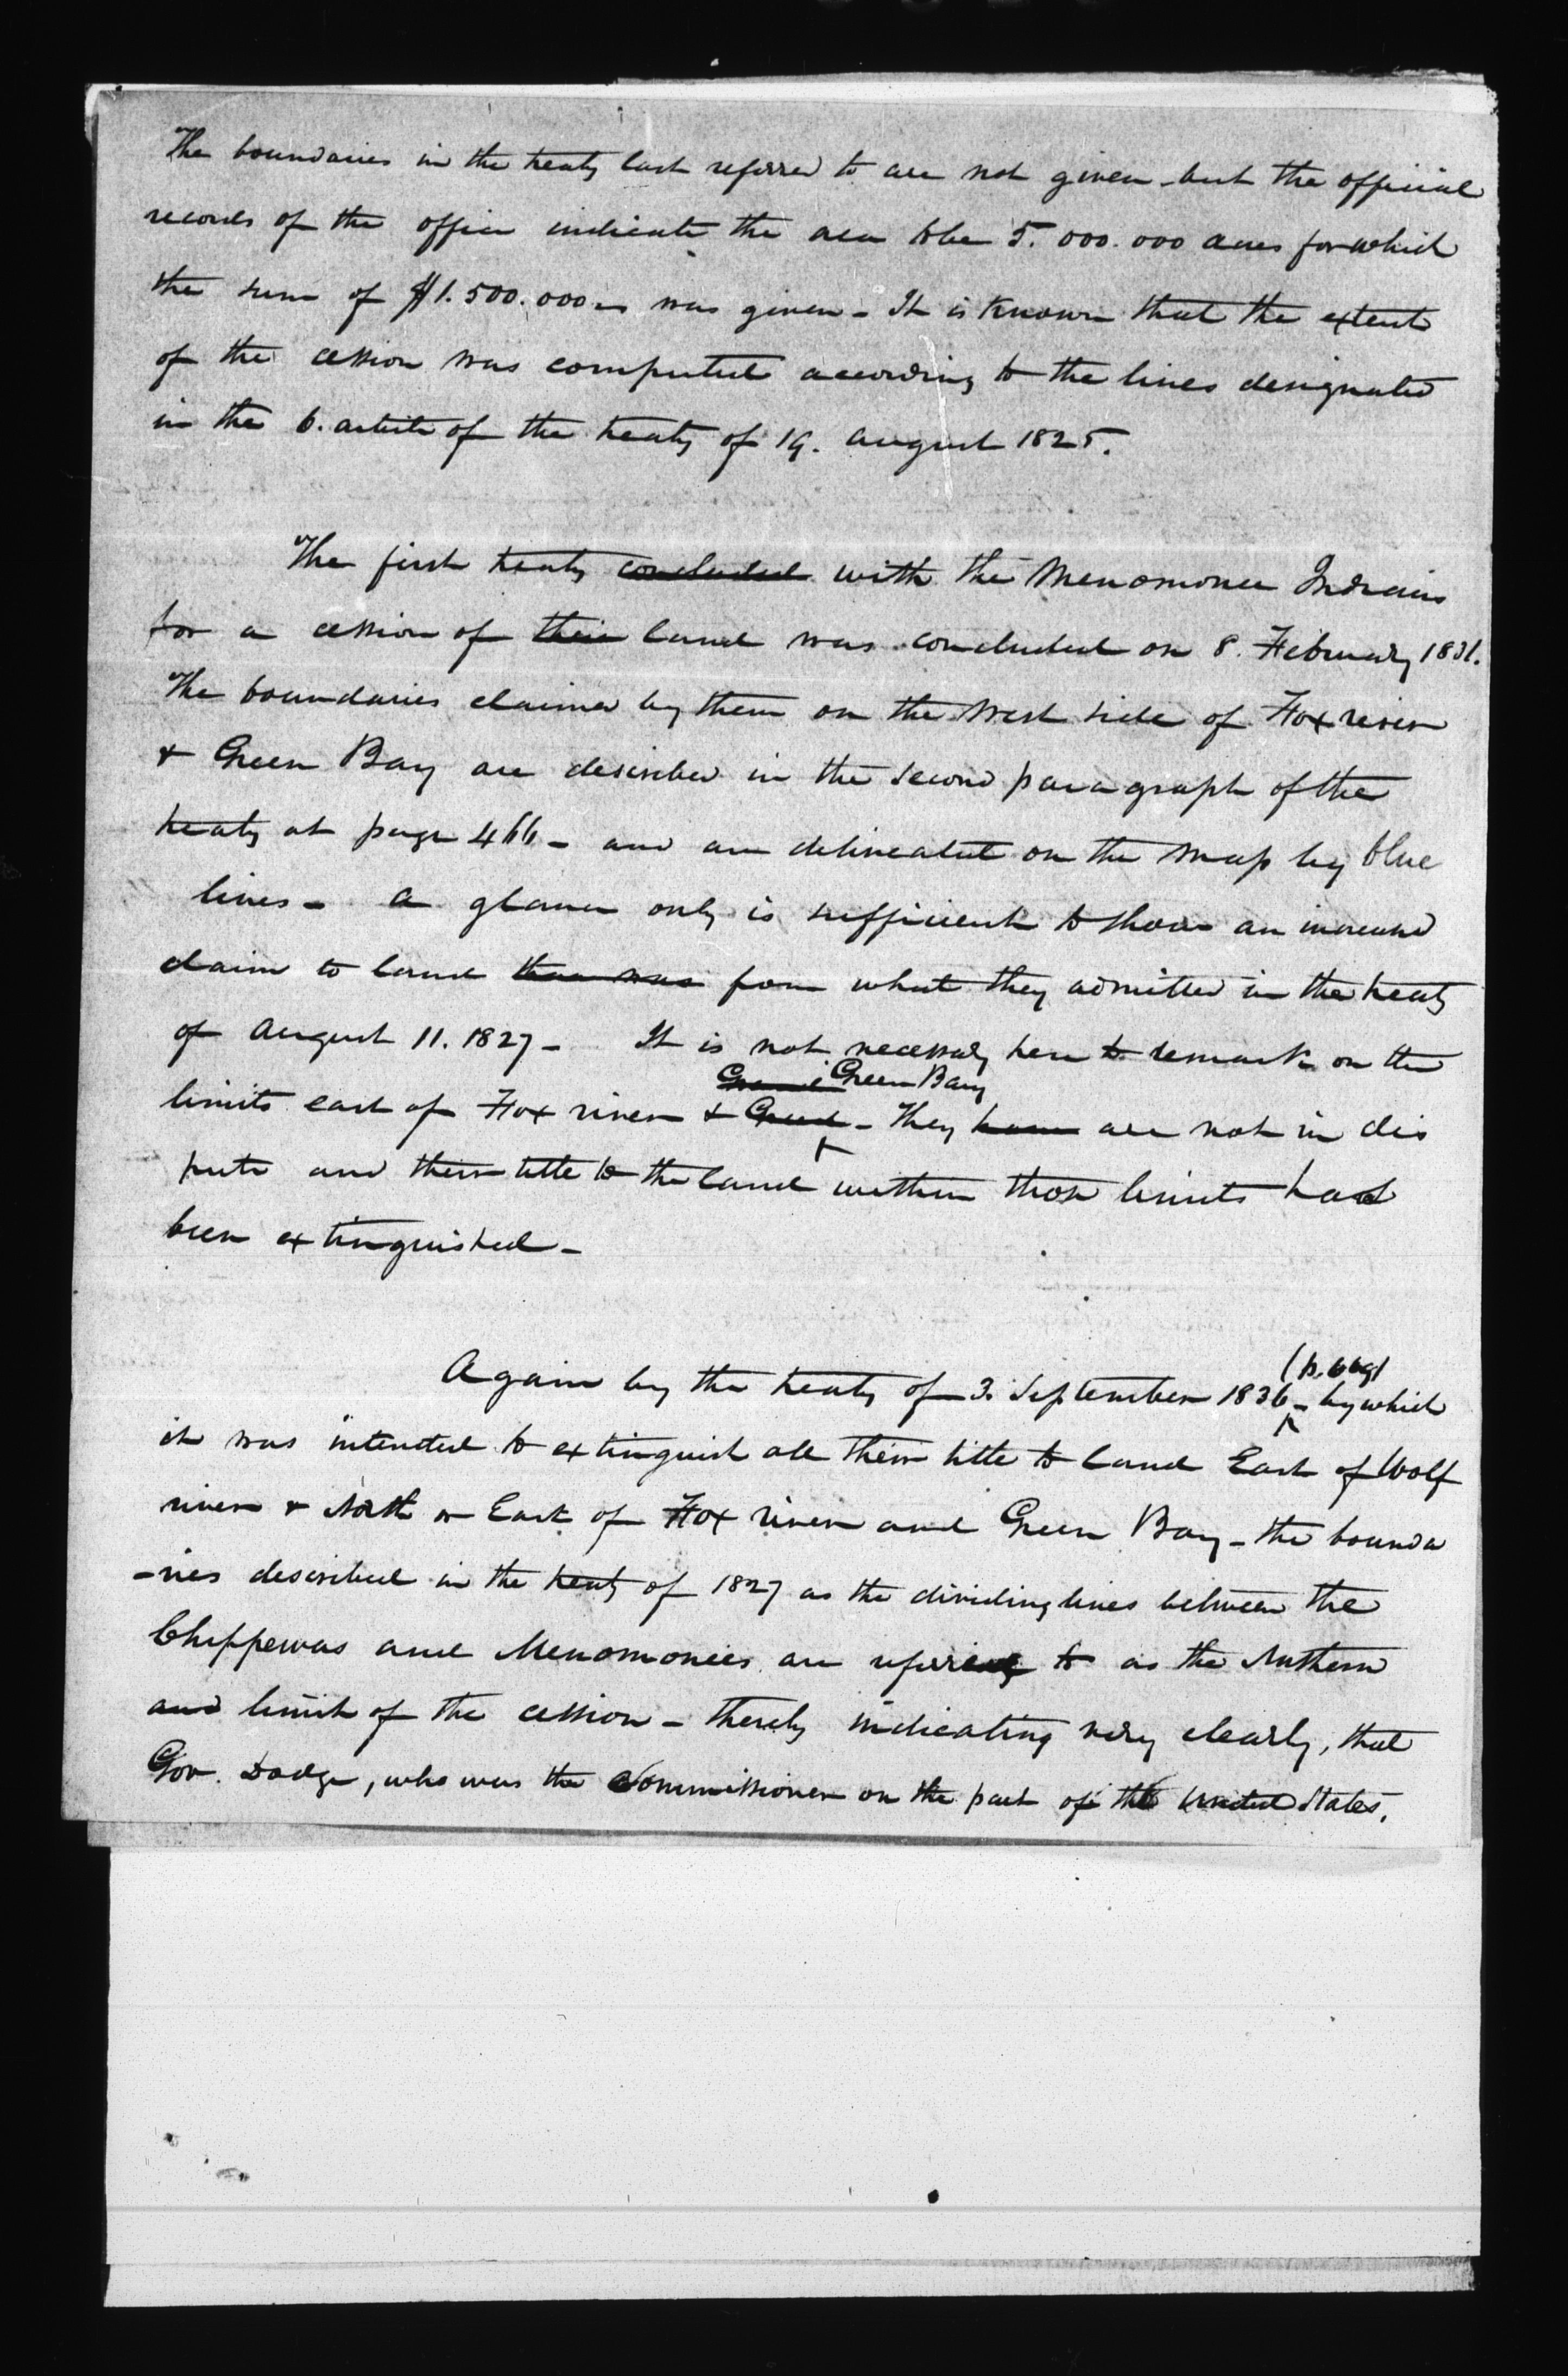 The boundaries in the treaty last referred to are not given - but the official
records of the office indicate the area to be 5.000.000 acres for which
the sum of $1.500.000 was given - It is known that the extent
of the cession was computed according to the lines designated
in the 6. article of the treaty of 19. August 1825.
The first treaty concluded with the Menomonee Indians
for a cession of their land was concluded on 8. February 1831.
The boundaries claimed by them on the West side of Fox river
& Green Bay are described in the second paragraph of the
treaty at page 466 - and are delineated on the map by blue
lines - a glance only is sufficient to show an increased
claim to land than was from what they admitted in the treaty
of August 11. 1827 - It is not necessary here to remark on the
Green Bay
limits east of Fox river & - They have are not in dis
pute and their title to the land within those limits had
been extinguished -
(p. 669)
Again by the treaty of 3. September 1836 - by which
it was intended to extinguish all their title to land East of Wolf
river & North or East of Fox river and Green Bay - the bounda
-ries described in the treaty of 1827 as the dividing lines between the
Chippewas and Menomonies are refered to as the Northern
and limit of the cession - thereby indicating very clearly, that
Gov. Dodge, who was the Commissioner on the part of the United States,